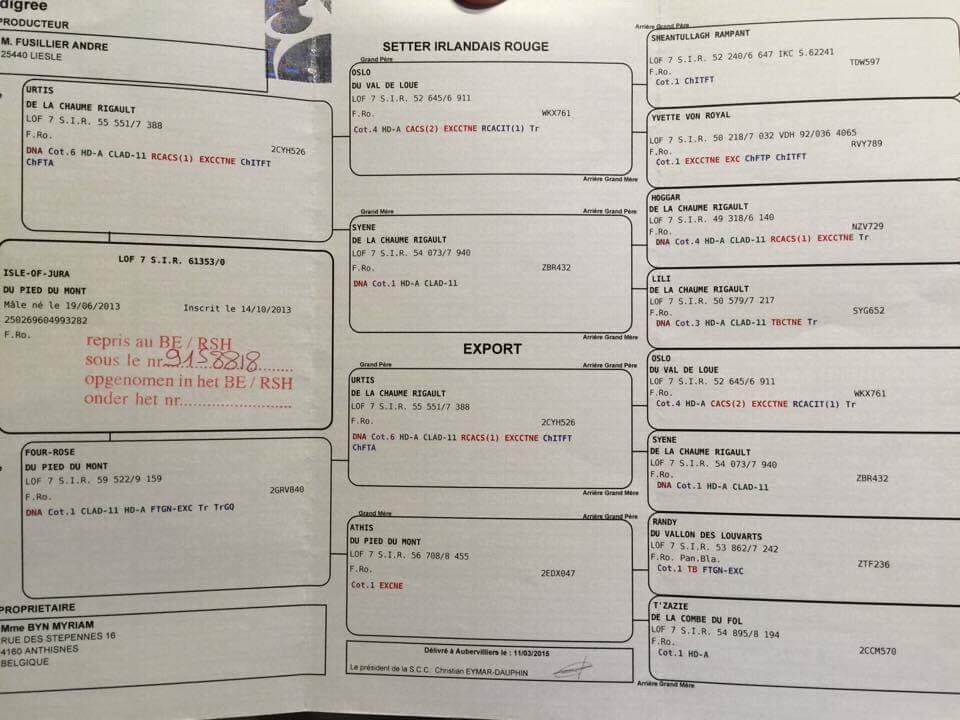 digree
PRODUCTEUR
M. FUSILLIER ANDRE
25440 LIESLE
URTIS
DE LA CHAUME RIGAULT
LOF 7 S.I.R. 55 551/7 388
F.Ro.
2CYH526
DNA Cot.6 HD-A CLAD-11 RCACS(1) EXCCTNE ChITFT
ChFTA
LOF 7 S.I.R. 61353/0
ISLE-OF-JURA
DU PIED DU MONT
Mâle né le 19/06/2013 Inscrit le 14/10/2013
250269604993282
F.Ro.
repris au BE / RSH
sous le nr. 9158818
opgenomen in het BE / RSH
onder het nr.
FOUR-ROSE
DU PIED DU MONT
LOF 7 S.I.R. 59 522/9 159
F.Ro.
2GRV840
DNA Cot.1 CLAD-11 HD-A FTGN-EXC Tr TrGQ
PROPRIETAIRE
Mme BYN MYRIAM
RUE DES STEPENNES 16
4160 ANTHISNES
BELGIQUE
SETTER IRLANDAIS ROUGE
Grand Père
OSLO
DU VAL DE LOUE
LOF 7 S.I.R. 52 645/6 911
F.Ro.
WKX761
Cot.4 HD-A CACS(2) EXCCTNE RCACIT(1) Tr
Arrière Grand Mère
Grand Mère
Arrière Grand Père
SYENE
DE LA CHAUME RIGAULT
LOF 7 S.I.R. 54 073/7 940
F.Ro.
ZBR432
DNA Cot.1 HD-A CLAD-11
EXPORT
Arrière Grand Mère
Grand Père
Arrière Grand Père
URTIS
DE LA CHAUME RIGAULT
LOF 7 S.I.R. 55 551/7 388
F.Ro.
2CYH526
DNA Cot.6 HD-A CLAD-11 RCACS(1) EXCCTNE ChITFT
ChFTA
Arrière Grand Mère
Grand Mère
Arrière Grand Père
ATHIS
DU PIED DU MONT
LOF 7 S.I.R. 56 708/8 455
F.Ro.
2EDX047
Cot.1 EXCNE
Délivré à Aubervilliers le : 11/03/2015
Le président de la S.C.C.: Christian EYMAR-DAUPHIN
Arrière Grand Père
SHEANTULLAGH RAMPANT
LOF 7 S.I.R. 52 240/6 647 IKC S.62241
F.Ro.
TDW597
Cot.1 ChITFT
YVETTE VON ROYAL
LOF 7 S.I.R. 50 218/7 032 VDH 92/036 4065
F.Ro.
RVY789
Cot.1 EXCCTNE EXC ChFTP ChITFT
HOGGAR
DE LA CHAUME RIGAULT
LOF 7 S.I.R. 49 318/6 140
F.Ro.
NZV729
DNA Cot.4 HD-A CLAD-11 RCACS(1) EXCCTNE Tr
LILI
DE LA CHAUME RIGAULT
LOF 7 S.I.R. 50 579/7 217
F.Ro.
SYG652
DNA Cot.3 HD-A CLAD-11 TBCTNE Tr
OSLO
DU VAL DE LOUE
LOF 7 S.I.R. 52 645/6 911
F.Ro.
WKX761
Cot.4 HD-A CACS(2) EXCCTNE RCACIT(1) Tr
SYENE
DE LA CHAUME RIGAULT
LOF 7 S.I.R. 54 073/7 940
F.Ro.
ZBR432
DNA Cot.1 HD-A CLAD-11
RANDY
DU VALLON DES LOUVARTS
LOF 7 S.I.R. 53 862/7 242
F.Ro. Pan.Bla.
ZTF236
Cot.1 TB FTGN-EXC
T'ZAZIE
DE LA COMBE DU FOL
LOF 7 S.I.R. 54 895/8 194
F.Ro.
2CCM570
Cot.1 HD-A
Arrière Grand Mère